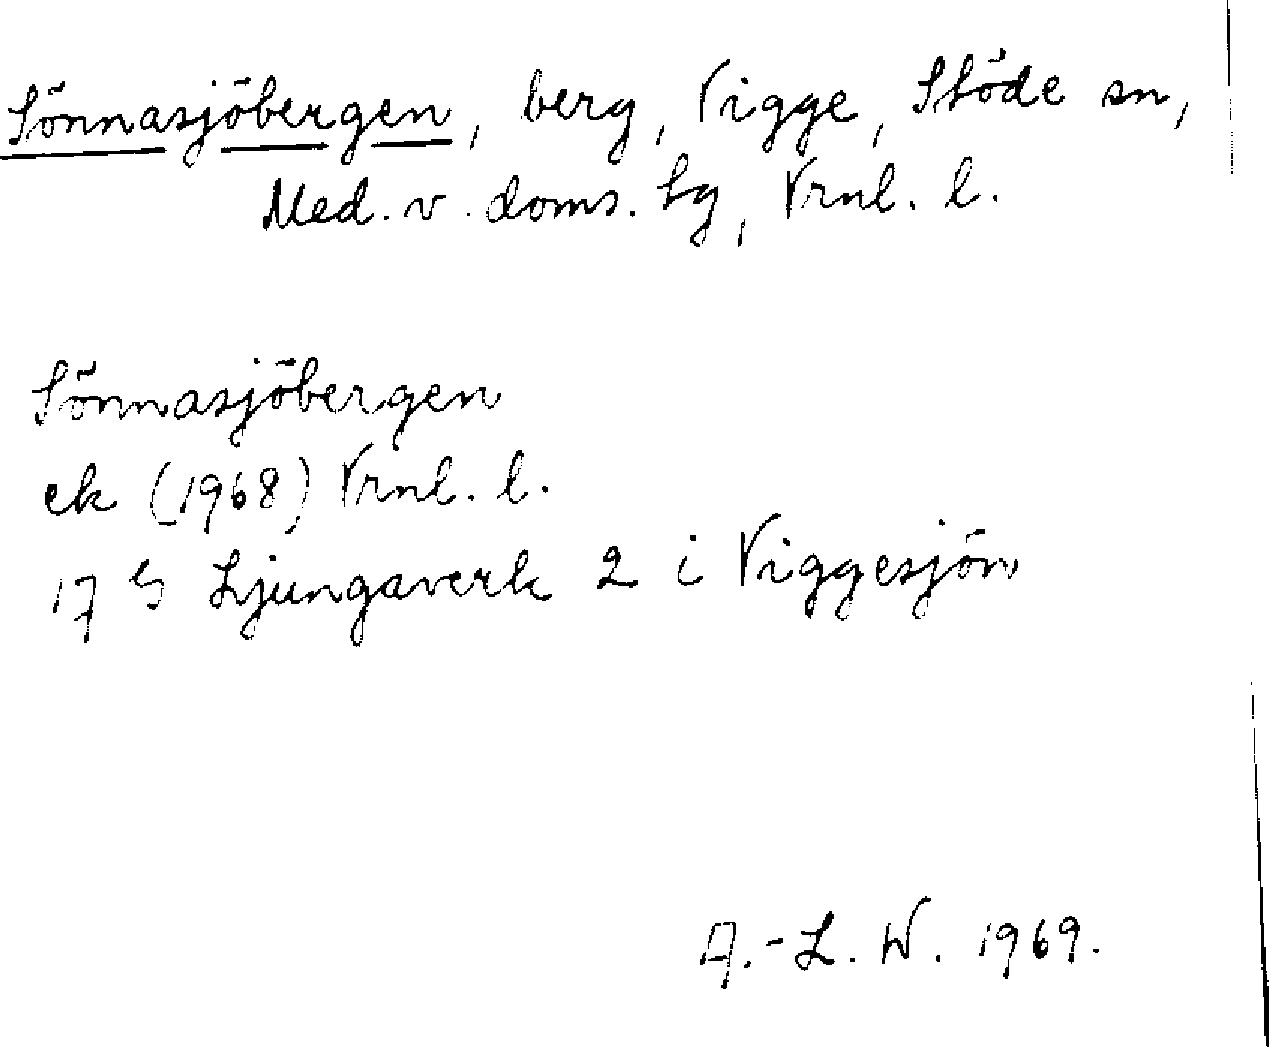 Sönnasjöbergen, berg, Vigge, Stöde sn,
Med. v. doms. hg, Vrnl. l.
Sönnasjöbergen
ek (1968) Vrnl. l.
17 G Ljungaverk 2 i Viggesjön
A.-L. W. 1969.